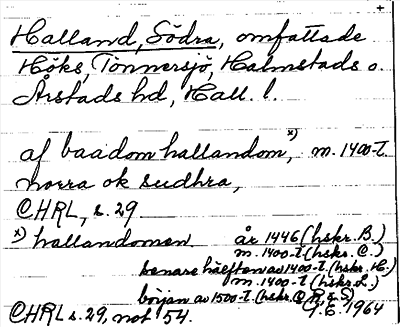 +
Halland, Södra, omfattade
Höks, Tönnersjö, Halmstads o.
Årstads hd, Hall. l.
af baadom hallandom x), m. 1400-t.
norra ok sudhra,
CHRL, s. 29
x) hallandomen år 1446 (hskr. B.)
m. 1400-t. (hskr. C.)
senare hälften av 1400-t. (hskr. H.)
m. 1400-t. (hskr. L.)
början av 1500-t. (hskr. Q, R, o. S)
CHRL s. 29, not 54. G.E. 1964